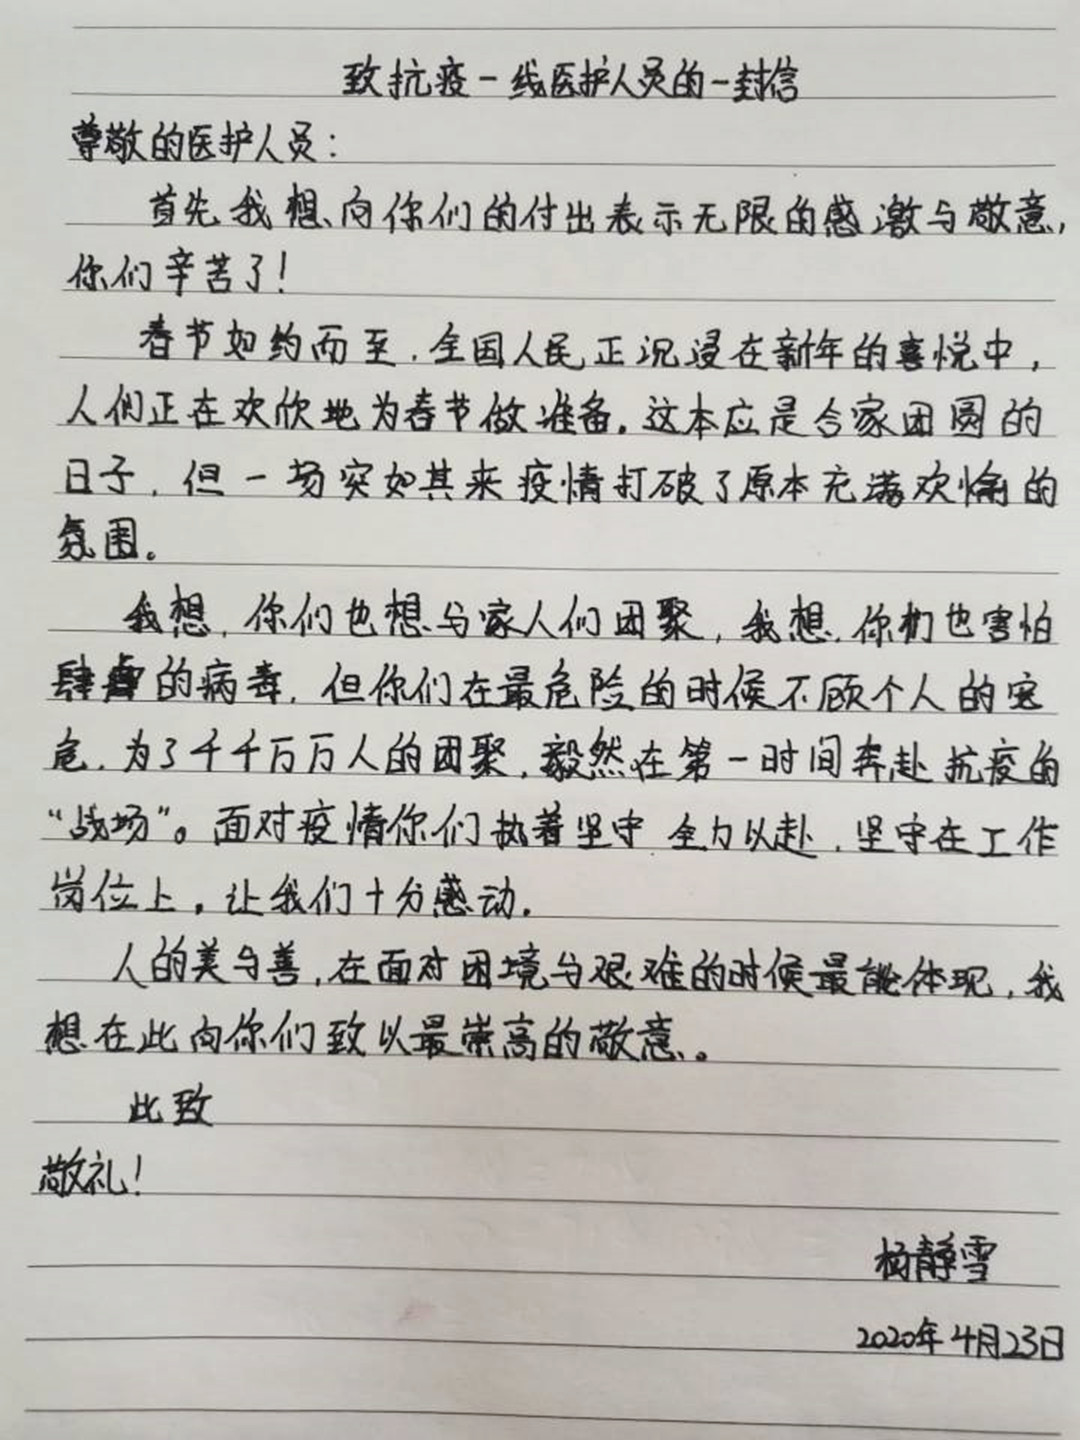 致抗疫一线医护人员的一封信
尊敬的医护人员：
首先我想向你们的付出表示无限的感激与敬意，
你们辛苦了！
春节如约而至，全国人民正沉浸在新年的喜悦中，
人们正在欢欣地为春节做准备。这本应是合家团圆的
日子，但一场突如其来疫情打破了原本充满欢愉的
氛围。
我想，你们也想与家人们团聚，我想，你们也害怕
肆虐的病毒，但你们在最危险的时候不顾个人的安
危，为了千千万万人的团聚，毅然在第一时间奔赴抗疫的
“战场”。面对疫情你们执着坚守 全力以赴，坚守在工作
岗位上，让我们十分感动。
人的美与善，在面对困境与艰难的时候最能体现，我
想在此向你们致以最崇高的敬意。
此致
敬礼！
杨静雪
2020年4月23日